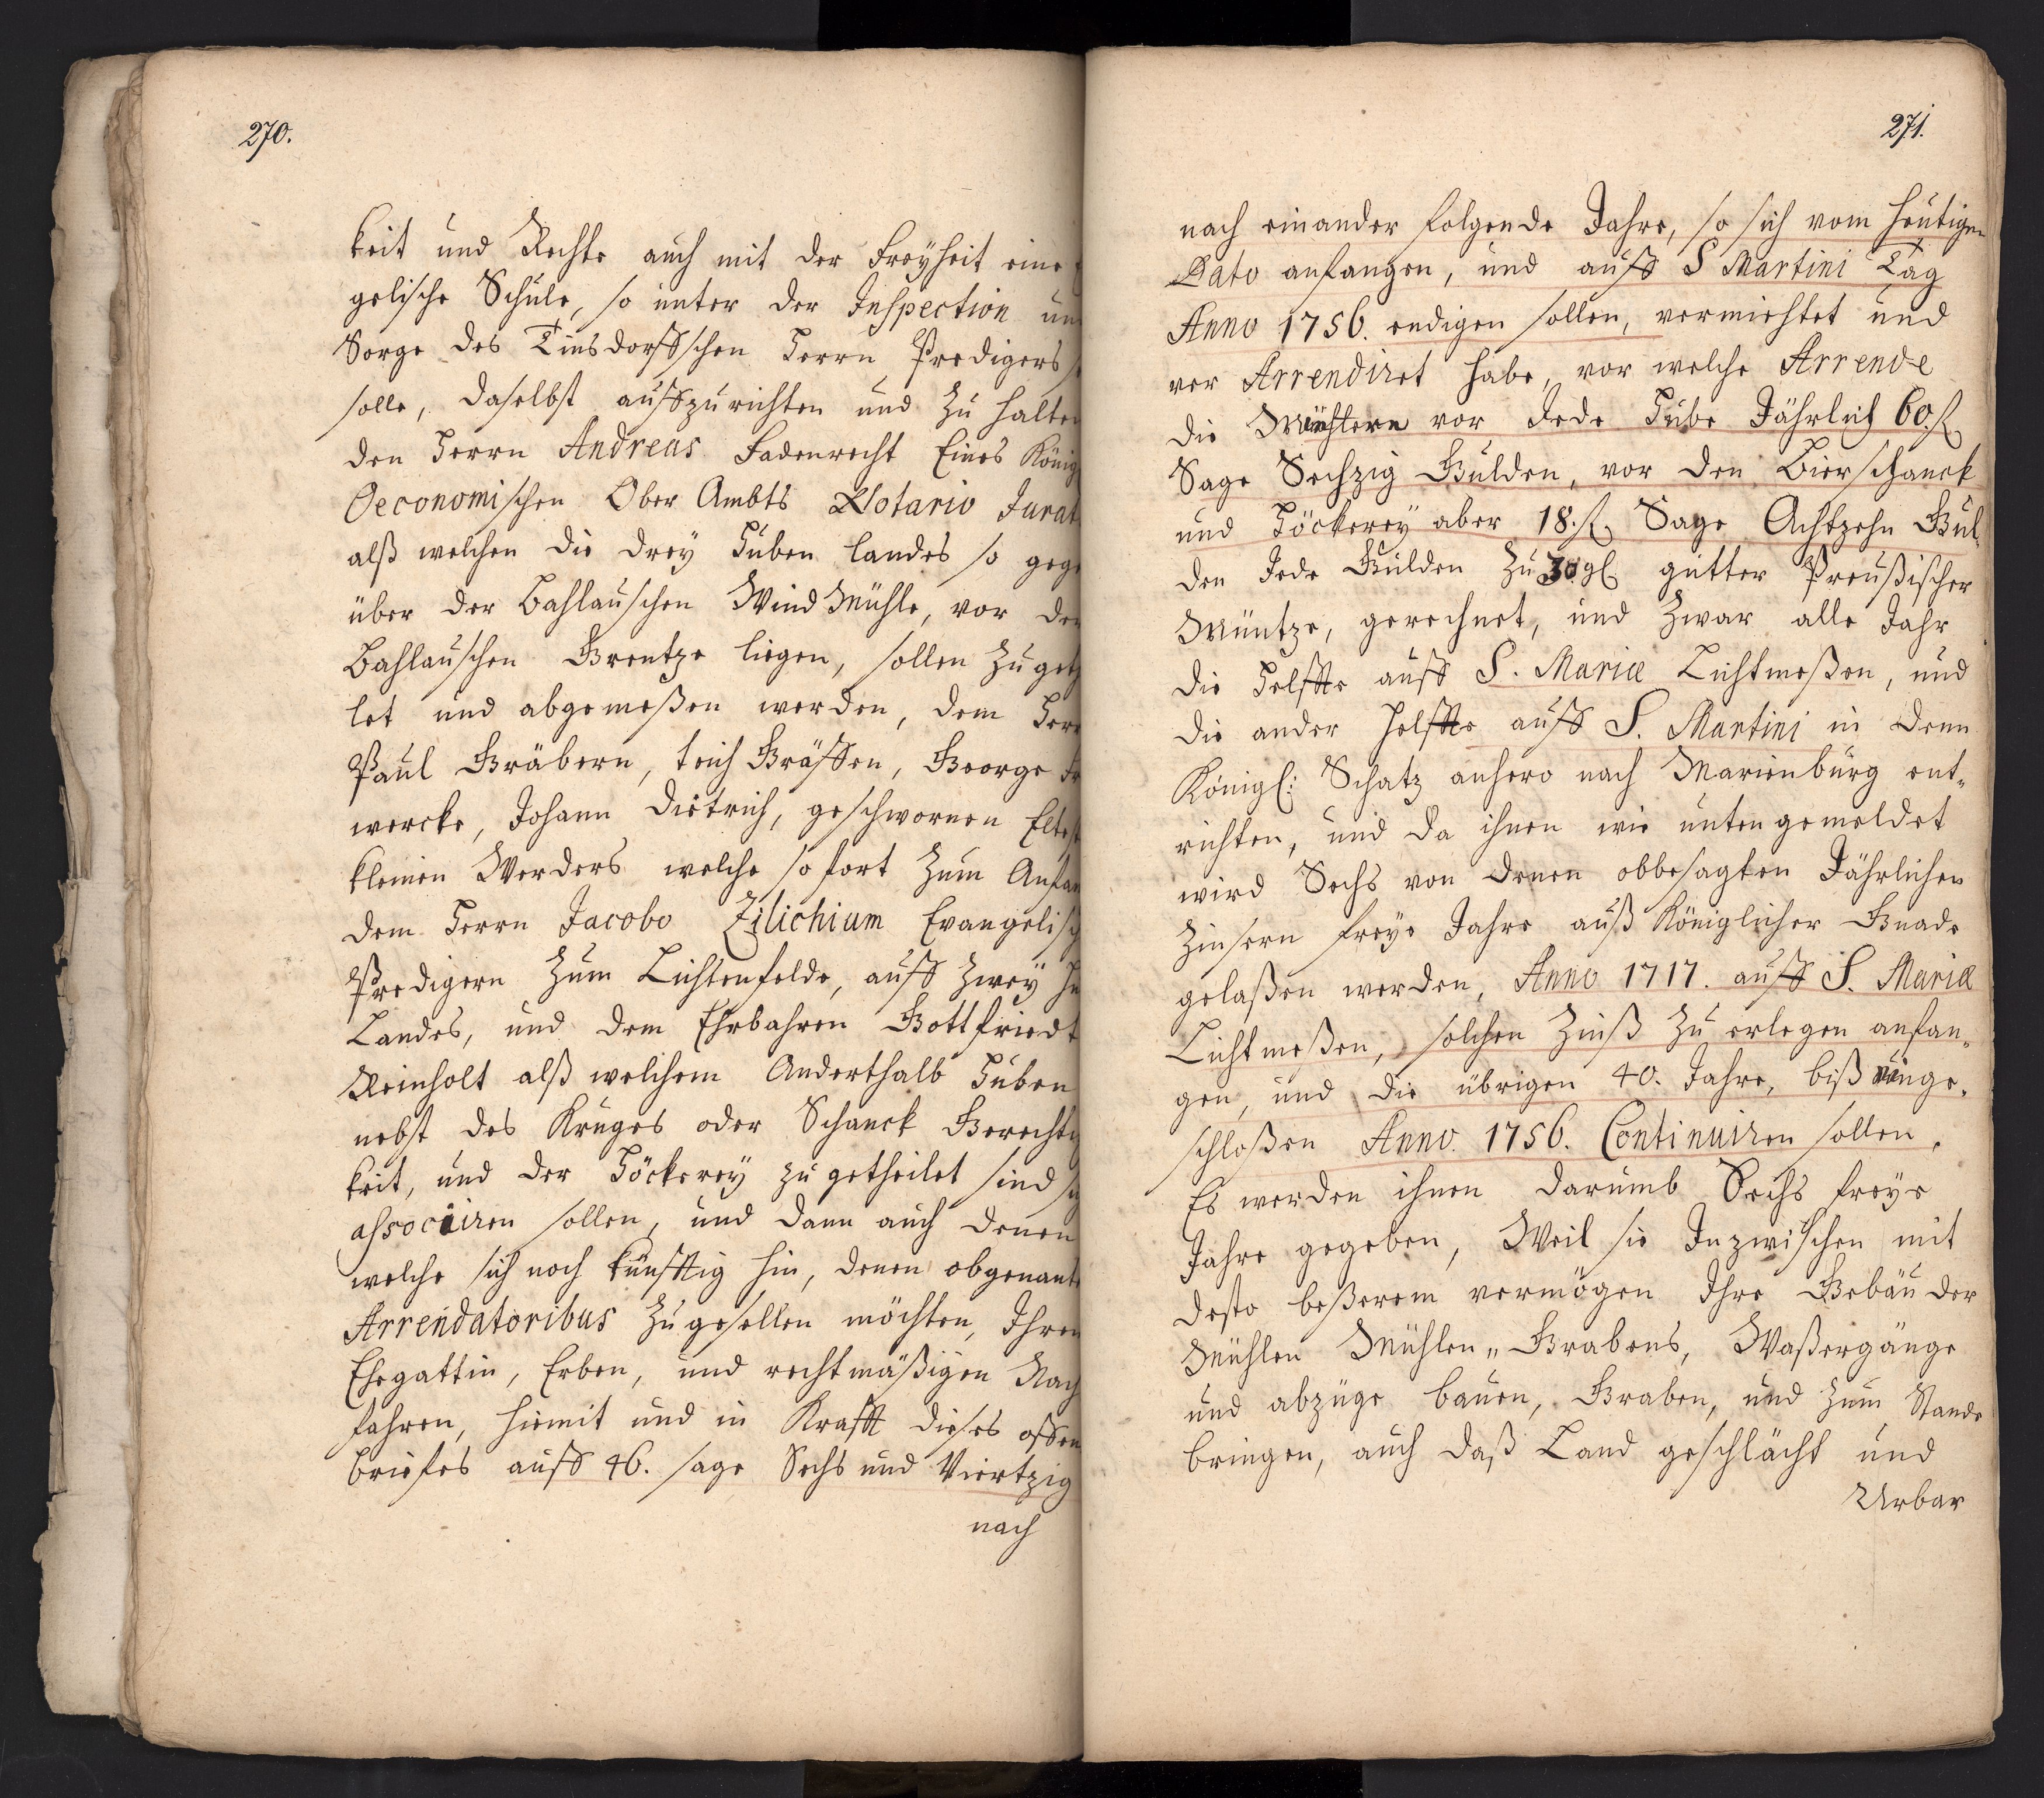 270.
keit und Rechte auch mit der Freyheit eine
gelische Schule, so unter der Inspection und
Sorge des Tinsdorffschen Herrn Predigers
solle, daselbst auffzurichten und zu halten
den Herrn Andreas Fadenrecht Eines König
Oeconomischen Ober Ambts Notario Jurat
alß welchen die drey Huben landes so geg
über der Bahlauschen Wind Mühle, vor der
Bahlauschen Grentze liegen, sollen zugeth
let und abgemeßen werden, dem Herr
Paul Gräbern, Erich Gräffen, George
wercke, Johann Dietrich, geschwornen Eltest
kleinen Werders welche sofort zum Anfan
dem Herrn Jacobo Zilichium Evangelisch
Predigern zum Lichtenfelde, auff zwey Hu
Landes, und dem Ehrbahren Gottfriedt
Reinholt alß welchem Anderthalb Huben
nebst des Kruges oder Schanck Gerechtig
keit, und der Höckerey zugetheilet sind
associiren sollen, und dann auch denen
welche sich noch künfftig hin, denen obgenant
Arrendatoribus zugesellen möchten, Ihren
Ehegattin, Erben, und rechtmäßigen Nach
fahren, hiemit und in Krafft dieses offen
briefes auff 46. sage Sechs und Viertzig
nach
271.
nach einander folgende Jahre, so sich vom heutigen
Dato anfangen, und auff S Martini Tag
Anno 1756. endigen sollen, vermiehtet und
ver Arrendiret habe, vor welche Arrende
die Miehtere vor Jede Hube Jährlich 60. fl
Sage Sechzig Gulden, vor den Bierschanck
und Höckerey aber 18. fl Sage Achtzehn Gul-
den Jede Gulden zu 30 gl gutter Preußischer
Müntze, gerechnet, und zwar alle Jahr
die Helffte auff S. Mariæ Lichtmeßen, und
die ander Helffte auff S. Martini in denn
Königl: Schatz anhero nach Marienburg ent-
richten, und da ihnen wie unten gemeldet
wird Sechs von denen obbesagten Jährlichen
Zinsern freye Jahre auß Königlicher Gnade
gelaßen werden, Anno 1717. auff S. Mariæ
Lichtmeßen, solchen Zinß zu erlegen anfan-
gen, und die übrigen 40. Jahre, biß einge-
schloßen Anno 1756. Continuiren sollen.
Es werden ihnen darumb Sechs freye
Jahre gegeben, Weil sie Inzwischen mit
desto beßerem vermögen Ihre Gebäuder
Mühlen Mühlen-Grabens, Waßergänge
und abzüge bauen, Graben, und zum Stande
bringen, auch daß Land geschlacht und
Urbar